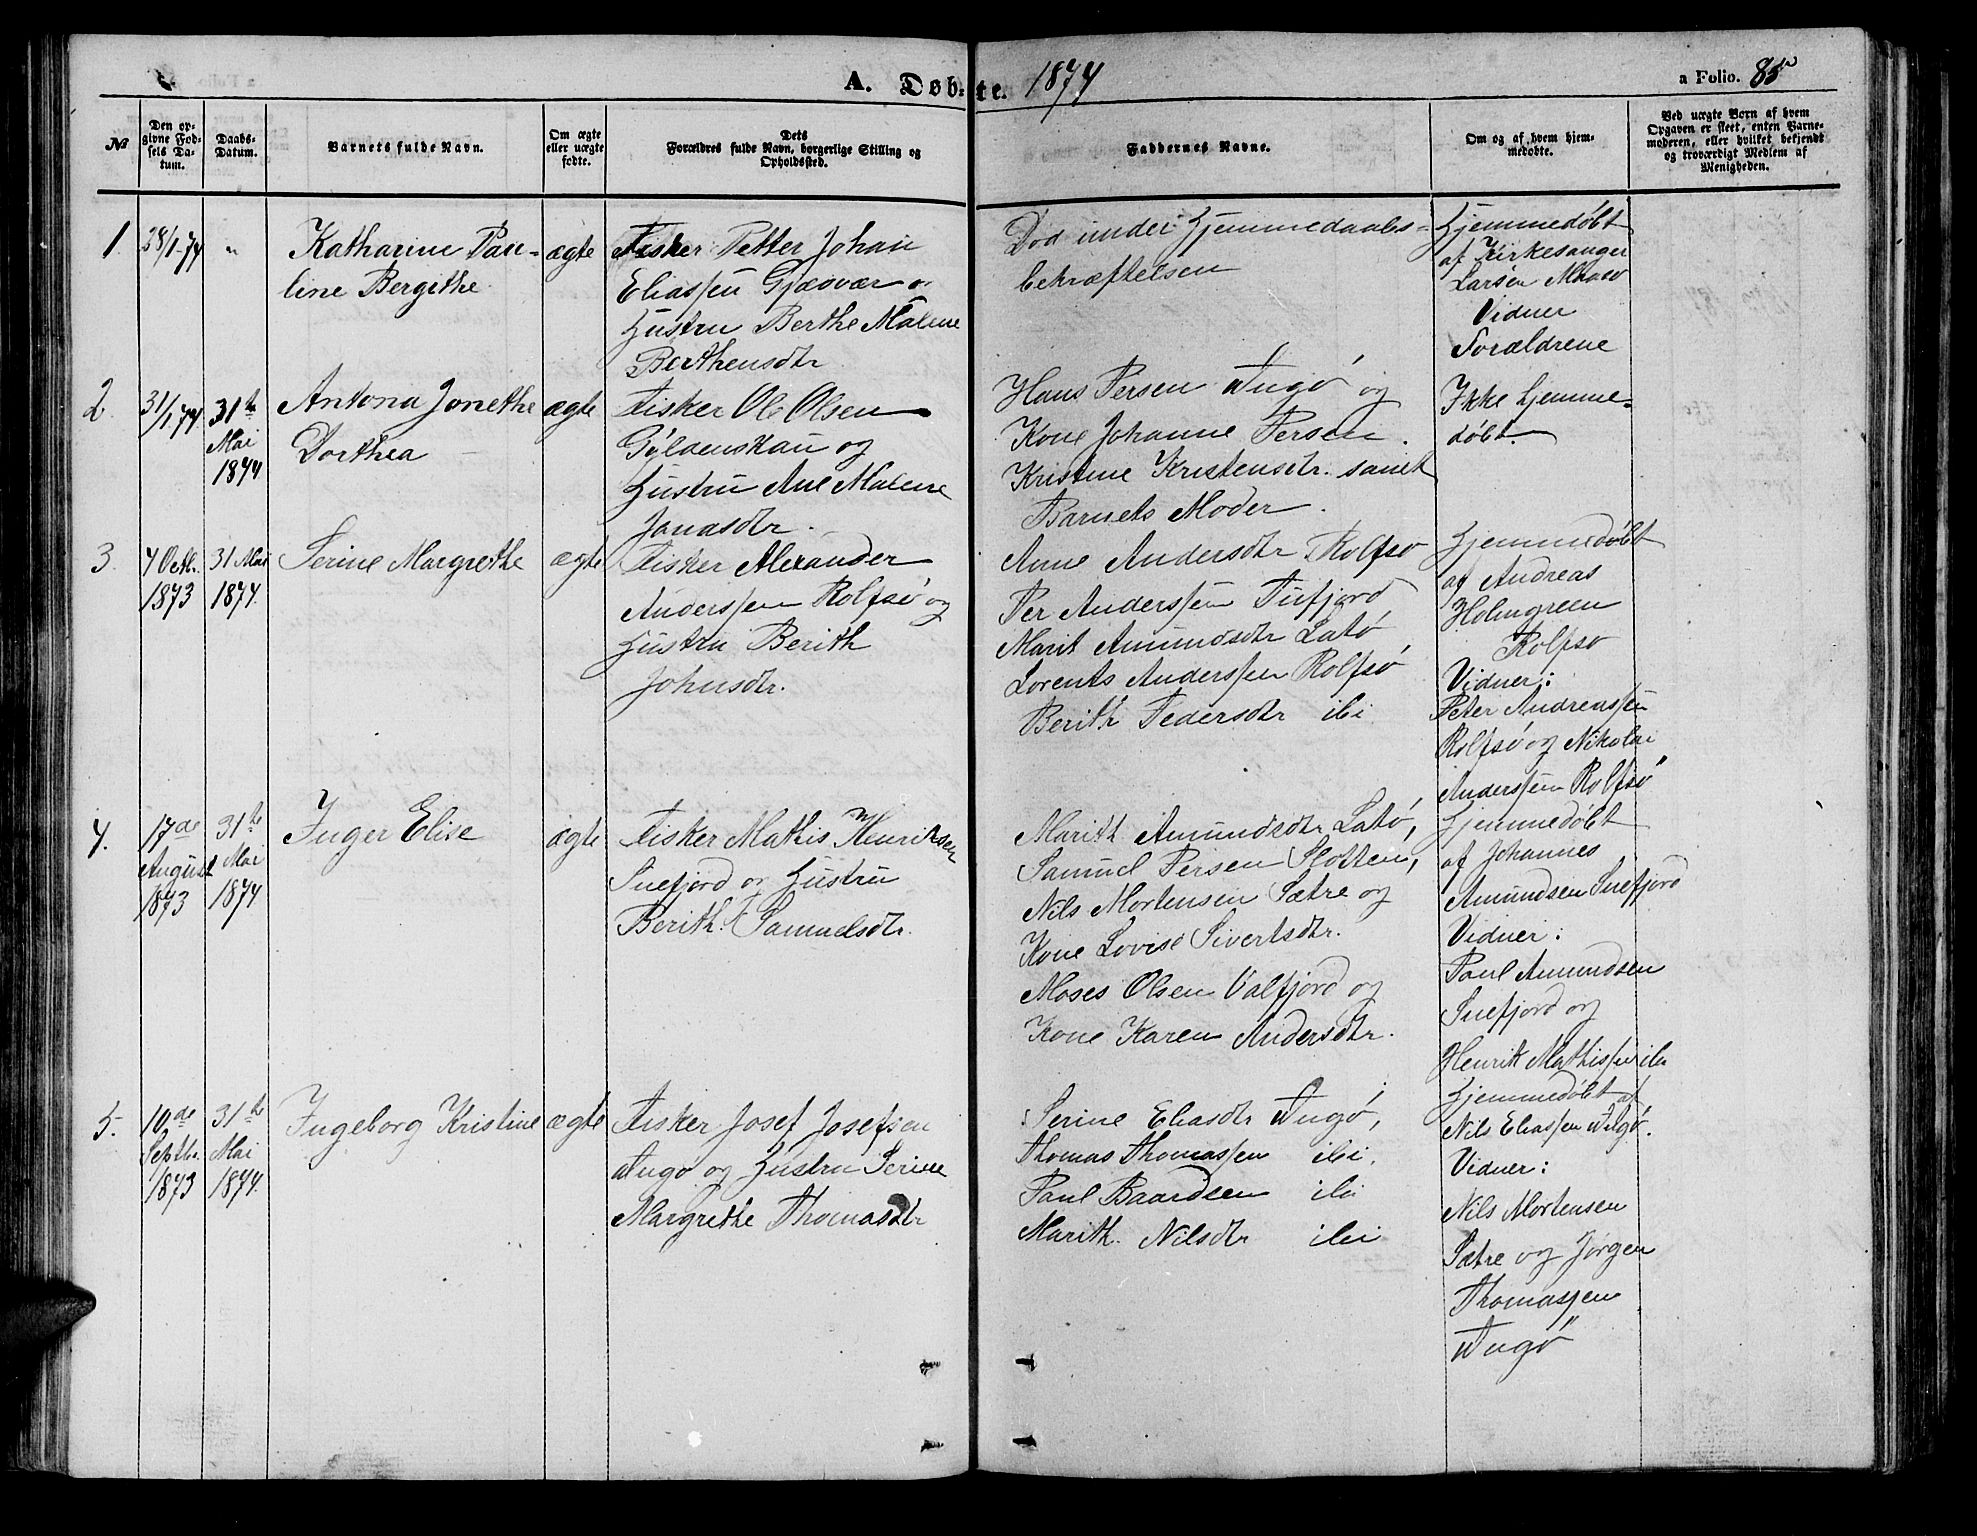 A. Døbte. 1874
a Folio. 85
№
Den opgivne Fødsels Datum.
Daabs-Datum.
Barnets fulde Navn.
Om ægte eller uægte fødte.
Dets Forældres fulde Navn, borgerlige Stilling og Opholdssted.
Faddernes Navne.
Om og af hvem hjemmedøbte.
Ved uægte Børn af hvem Opgaven er skeet, enten Barnemoderen, eller hvilket bekjendt og troværdigt Medlem af Menigheden.
1. 28/1-74 "
Katharine Pau-
line Bergithe
ægte
Fisker Petter Johan
Eliassen Gjæsvær og
Hustru Berthe Malene
Berthensdtr
Død under Hjemmedaabs-
bekræftelsen
Hjemmedøbt
af Kirkesanger
Larsen Maasø
Vidner
Forældrene
2. 31/1.74 31te
Mai
1874
Antona Jonethe
Dorthea
ægte
Fisker Ole Olsen
Gyldenskau og
Hustru Ane Malene
Jonasdtr.
Hans Persen Tugø og
Kone Johanne Persen.
Kristine Kristensdtr. samt
Barnets Moder.
Ikke hjemme-
døbt.
3. 4 Octb.
1873
31 Mai
1874.
Serine Margrethe
ægte
Fisker Alexander
Anderssen Rolfsø og
Hustru Berith
Johnsdtr.
Anne Andersdtr Rolfsø
Per Anderssen Tufjord
Marit Amundsdtr Latø
Lorents Anderssen Rolfsø
Berith Pedersdtr ibi
Hjemmedøbt
af Andreas
Holmgreen
Rolfsø
Vidner:
Peter Andreassen
Rolfsø og Nikolai
Anderssen Rolfsø
4. 17de
August
1873
31te
Mai
1874
Inger Elise
ægte
Fisker Mathis Henriksen
Snefjord og Hustru
Berith Samuelsdtr.
Marith Amundsdtr Latø,
Samuel Persen Slotten,
Nils Mortensen Sætre og
Kone Lovise Sivertsdtr.
Moses Olsen Valfjord og
Kone Karen Andersdtr.
Hjemmedøbt
af Johannes
Amundsen Snefjord
Vidner:
Paul Amundsen
Snefjord og
Henrik Mathissen ibi
5. 10de
Septbr.
1873
31te
Mai
1874.
Ingeborg Kristine
ægte
Fisker Josef Josefsen
Tugø og Hustru Serine
Margrethe Thomasdtr
Serine Eliasdtr Tugø,
Thomas Thomassen ibi.
Paul Baardsen ibi
Marith Nilsdtr ibi
Hjemmedøbt af
Nils Eliassen Tugø.
Vidner:
Nils Mortensen
Sætre og Jørgen
Thomassen
Tugø